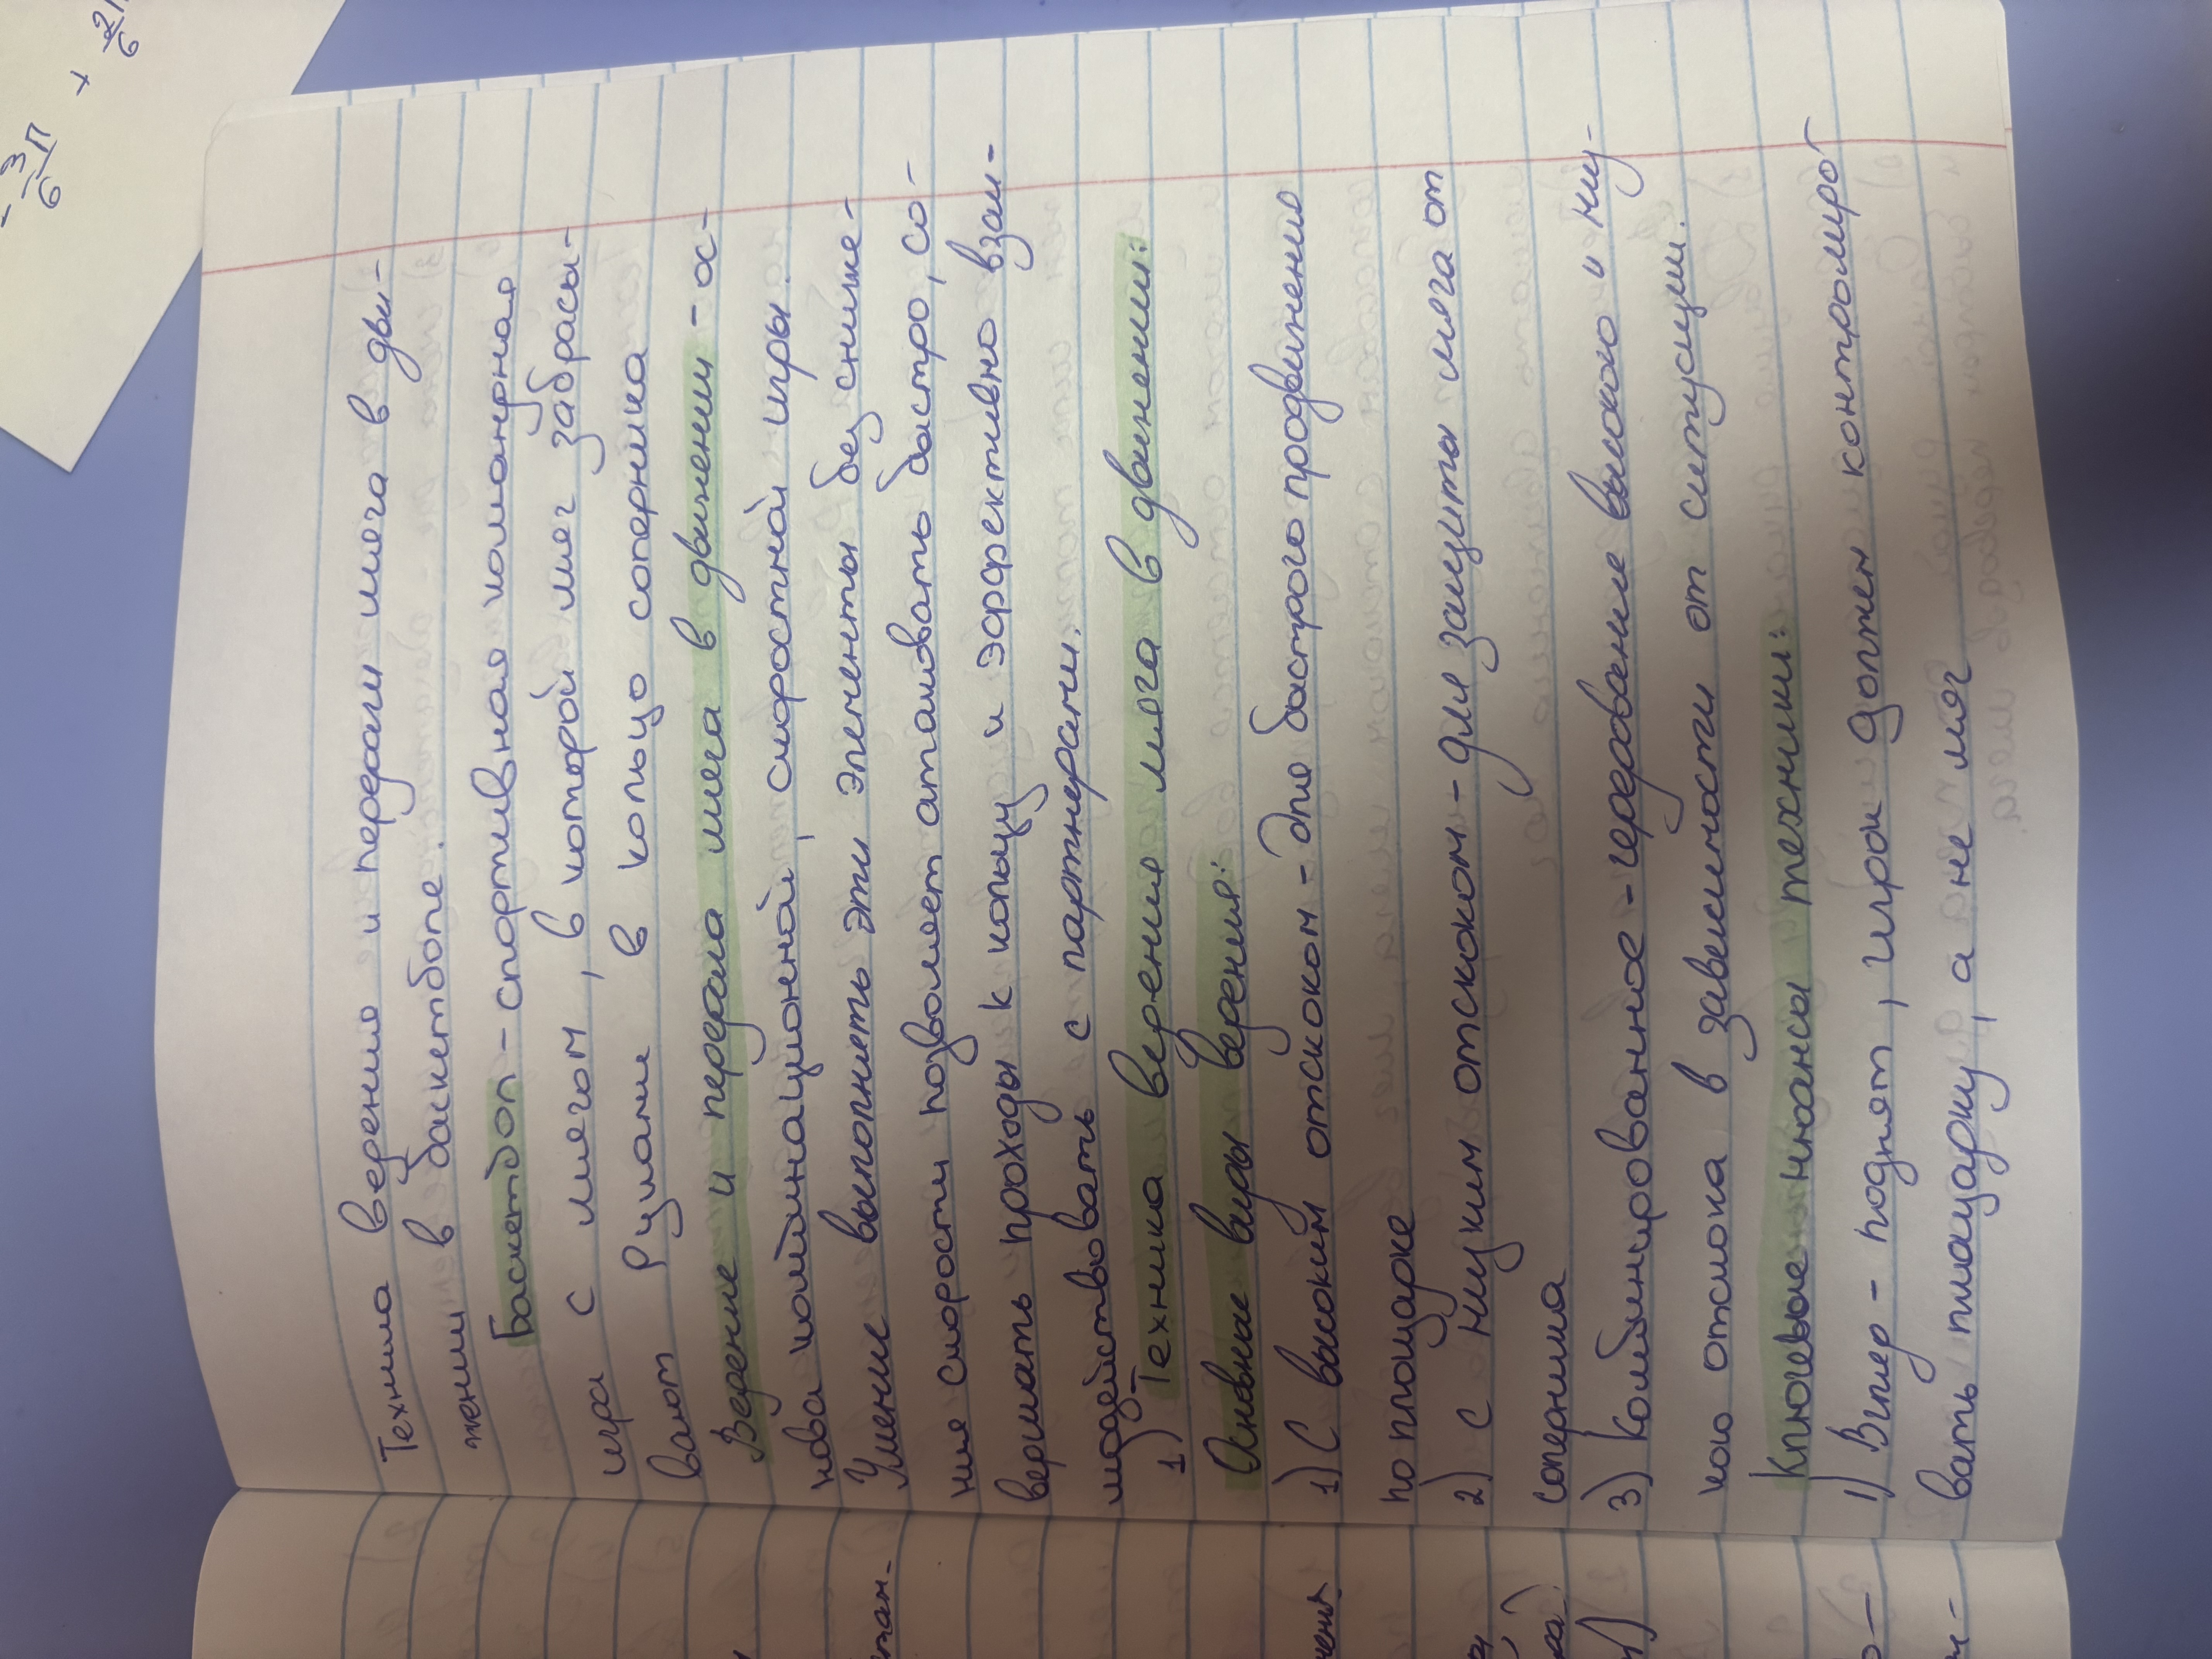 Техника ведения и передачи мяча в дви-
жении в баскетболе.
Баскетбол - спортивная командная
игра с мячом, в которой мяч забрасы-
вают руками в кольцо соперника
Ведение и передача мяча в движении - ос-
нова комбинационной, скоростной игры.
Умение выполнять эти элементы без сниже-
ния скорости позволяет атаковать быстро, со-
вершать проходы к кольцу и эффективно взаи-
модействовать с партнерами.
1) Техника ведения мяча в движении:
Основные виды ведения:
1) С высоким отскоком - для быстрого продвижения
по площадке
2) с низким отскоком - для защиты мяча от
соперника
3) Комбинированное - чередование высокого и низ-
кого отскока в зависимости от ситуации.
Ключевые нюансы техники:
1) Взгляд - поднят, игрок должен контролиро-
вать площадку, а не мяч
- 3П/6 +